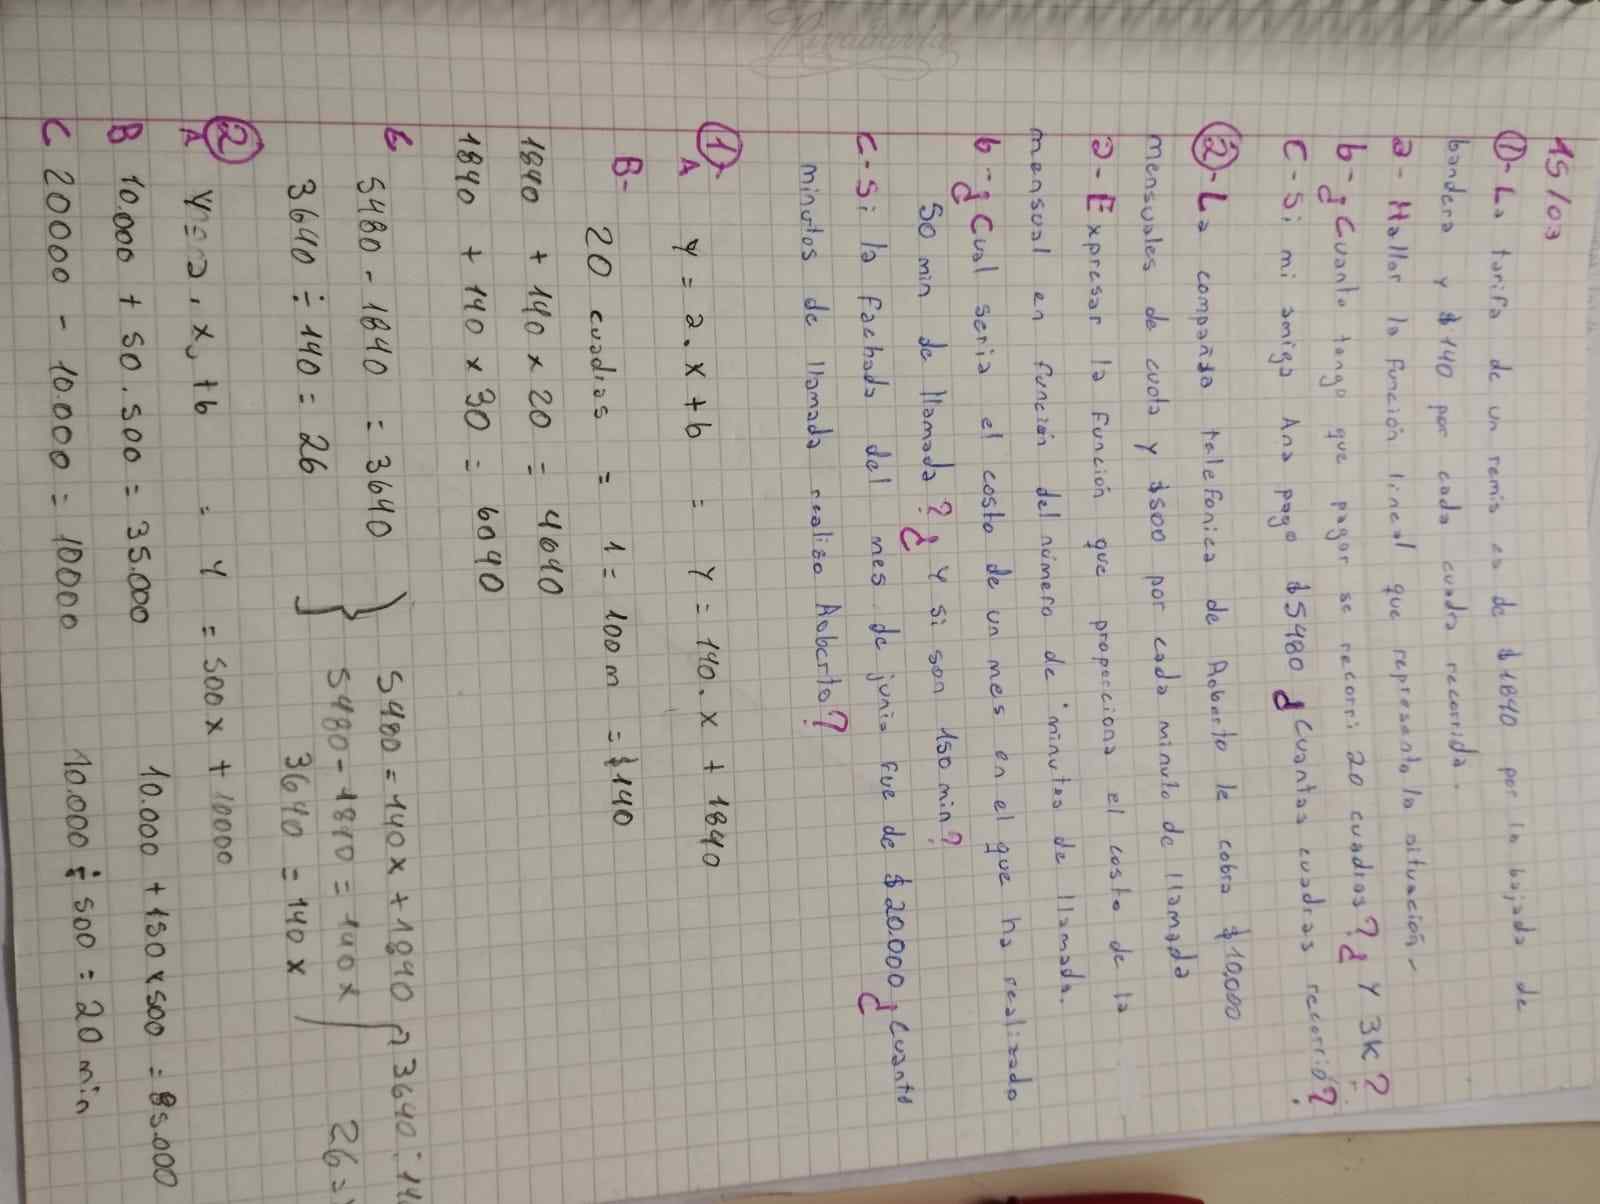 15/03
①- La tarifa de un remis es de $1840 por la bajada de
bandera y $140 por cada cuadra recorrida.
a- Hallar la función lineal que representa la situación-
b-¿Cuanto tengo que pagar se recorri 20 cuadras?¿Y 3K?
C- Si mi amiga Ana pago $5480 ¿Cuantas cuadras recorrió?
②- La compañia telefonica de Roberto le cobra $10.000
mensuales de cuota y $500 por cada minuto de llamada
a- Expresar la función que proporciona el costo de la
mensual en función del número de minutos de llamada.
b-¿Cual seria el costo de un mes en el que ha realizado
50 min de llamada?¿Y si son 150 min?
C- Si la fachada del mes de junio fue de $20.000 ¿Cuanto
minutos de llamada realizo Roberto?
① A Y = a. x + b = Y = 140. x + 1840
B- 20 cuadras = 1 = 100 m = $140
1840 + 140 x 20 = 4640
1840 + 140 x 30 = 6040
C 5480 - 1840 = 3640
3640 ÷ 140 = 26
5480 = 140x + 1840
5480 - 1840 = 140x
3640 = 140x
3640 : 14
26 =
②
A Y = a . x + b = Y = 500x + 10000
B 10.000 + 50 . 500 = 35.000 10.000 + 150 x 500 = 85.000
C 20000 - 10.000 = 10000 10.000 ÷ 500 = 20 min